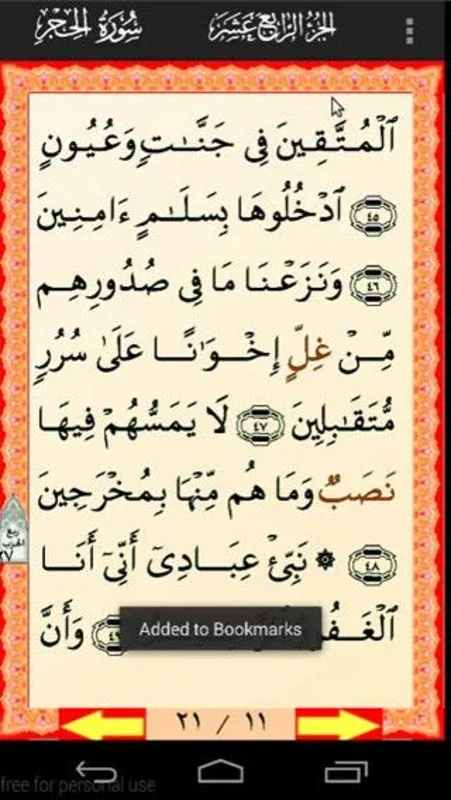 سُورَةُ الحِجْرِ الجُزْءُ الرَّابِعَ عَشَرَ
ٱلْمُتَّقِينَ فِى جَنَّٰتٍ وَعُيُونٍ
٤٥ ٱدْخُلُوهَا بِسَلَٰمٍ ءَامِنِينَ
٤٦ وَنَزَعْنَا مَا فِى صُدُورِهِم
مِّنْ غِلٍّ إِخْوَٰنًا عَلَىٰ سُرُرٍ
مُّتَقَٰبِلِينَ ٤٧ لَا يَمَسُّهُمْ فِيهَا
نَصَبٌ وَمَا هُم مِّنْهَا بِمُخْرَجِينَ
ربع
الحزب
٢٧
٤٨ ۞ نَبِّئْ عِبَادِىٓ أَنِّىٓ أَنَا
ٱلْغَفُورُ ٤٩ وَأَنَّ
Added to Bookmarks
٢١ / ١١
free for personal use